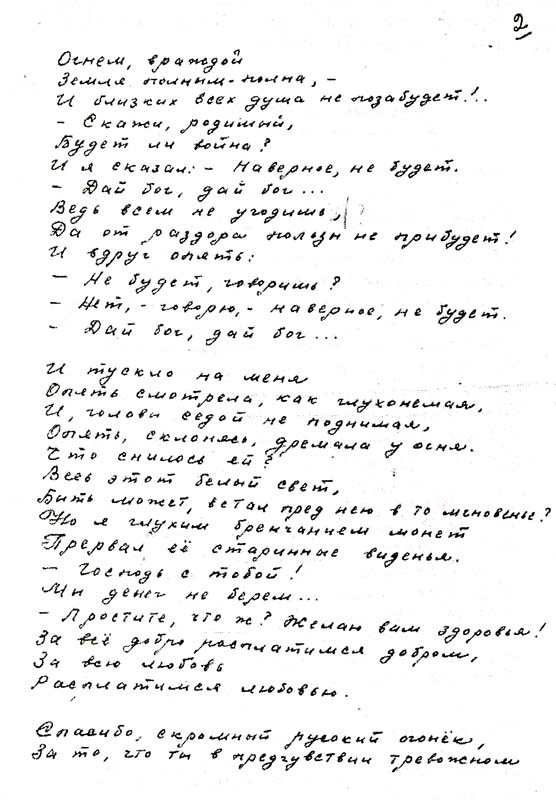 2
Огнем, враждой
Земля полным-полна, -
И близких всех душа не позабудет!..
- Скажи, родимый,
Будет ли война?
И я сказал: - Наверное, не будет.
- Дай бог, дай бог...
Ведь всем не угодишь,
Да от раздора пользы не прибудет!
И вдруг опять:
- Не будет, говоришь?
- Нет, - говорю, - наверное, не будет.
- Дай бог, дай бог...
И тускло на меня
Опять смотрела, как глухонемая,
И, головы седой не поднимая,
Опять, склонясь, дремала у огня.
Что снилось ей?
Весь этот белый свет,
Быть может, встал пред нею в то мгновенье?
Но я глухим бренчанием монет
Прервал её старинные виденья.
- Господь с тобой!
Мы денег не берем...
- Простите, что ж? Желаю вам здоровья!
За всё добро расплатимся добром,
За всю любовь
Расплатимся любовью.
Спасибо, скромный русский огонёк,
За то, что ты в предчувствии тревожном